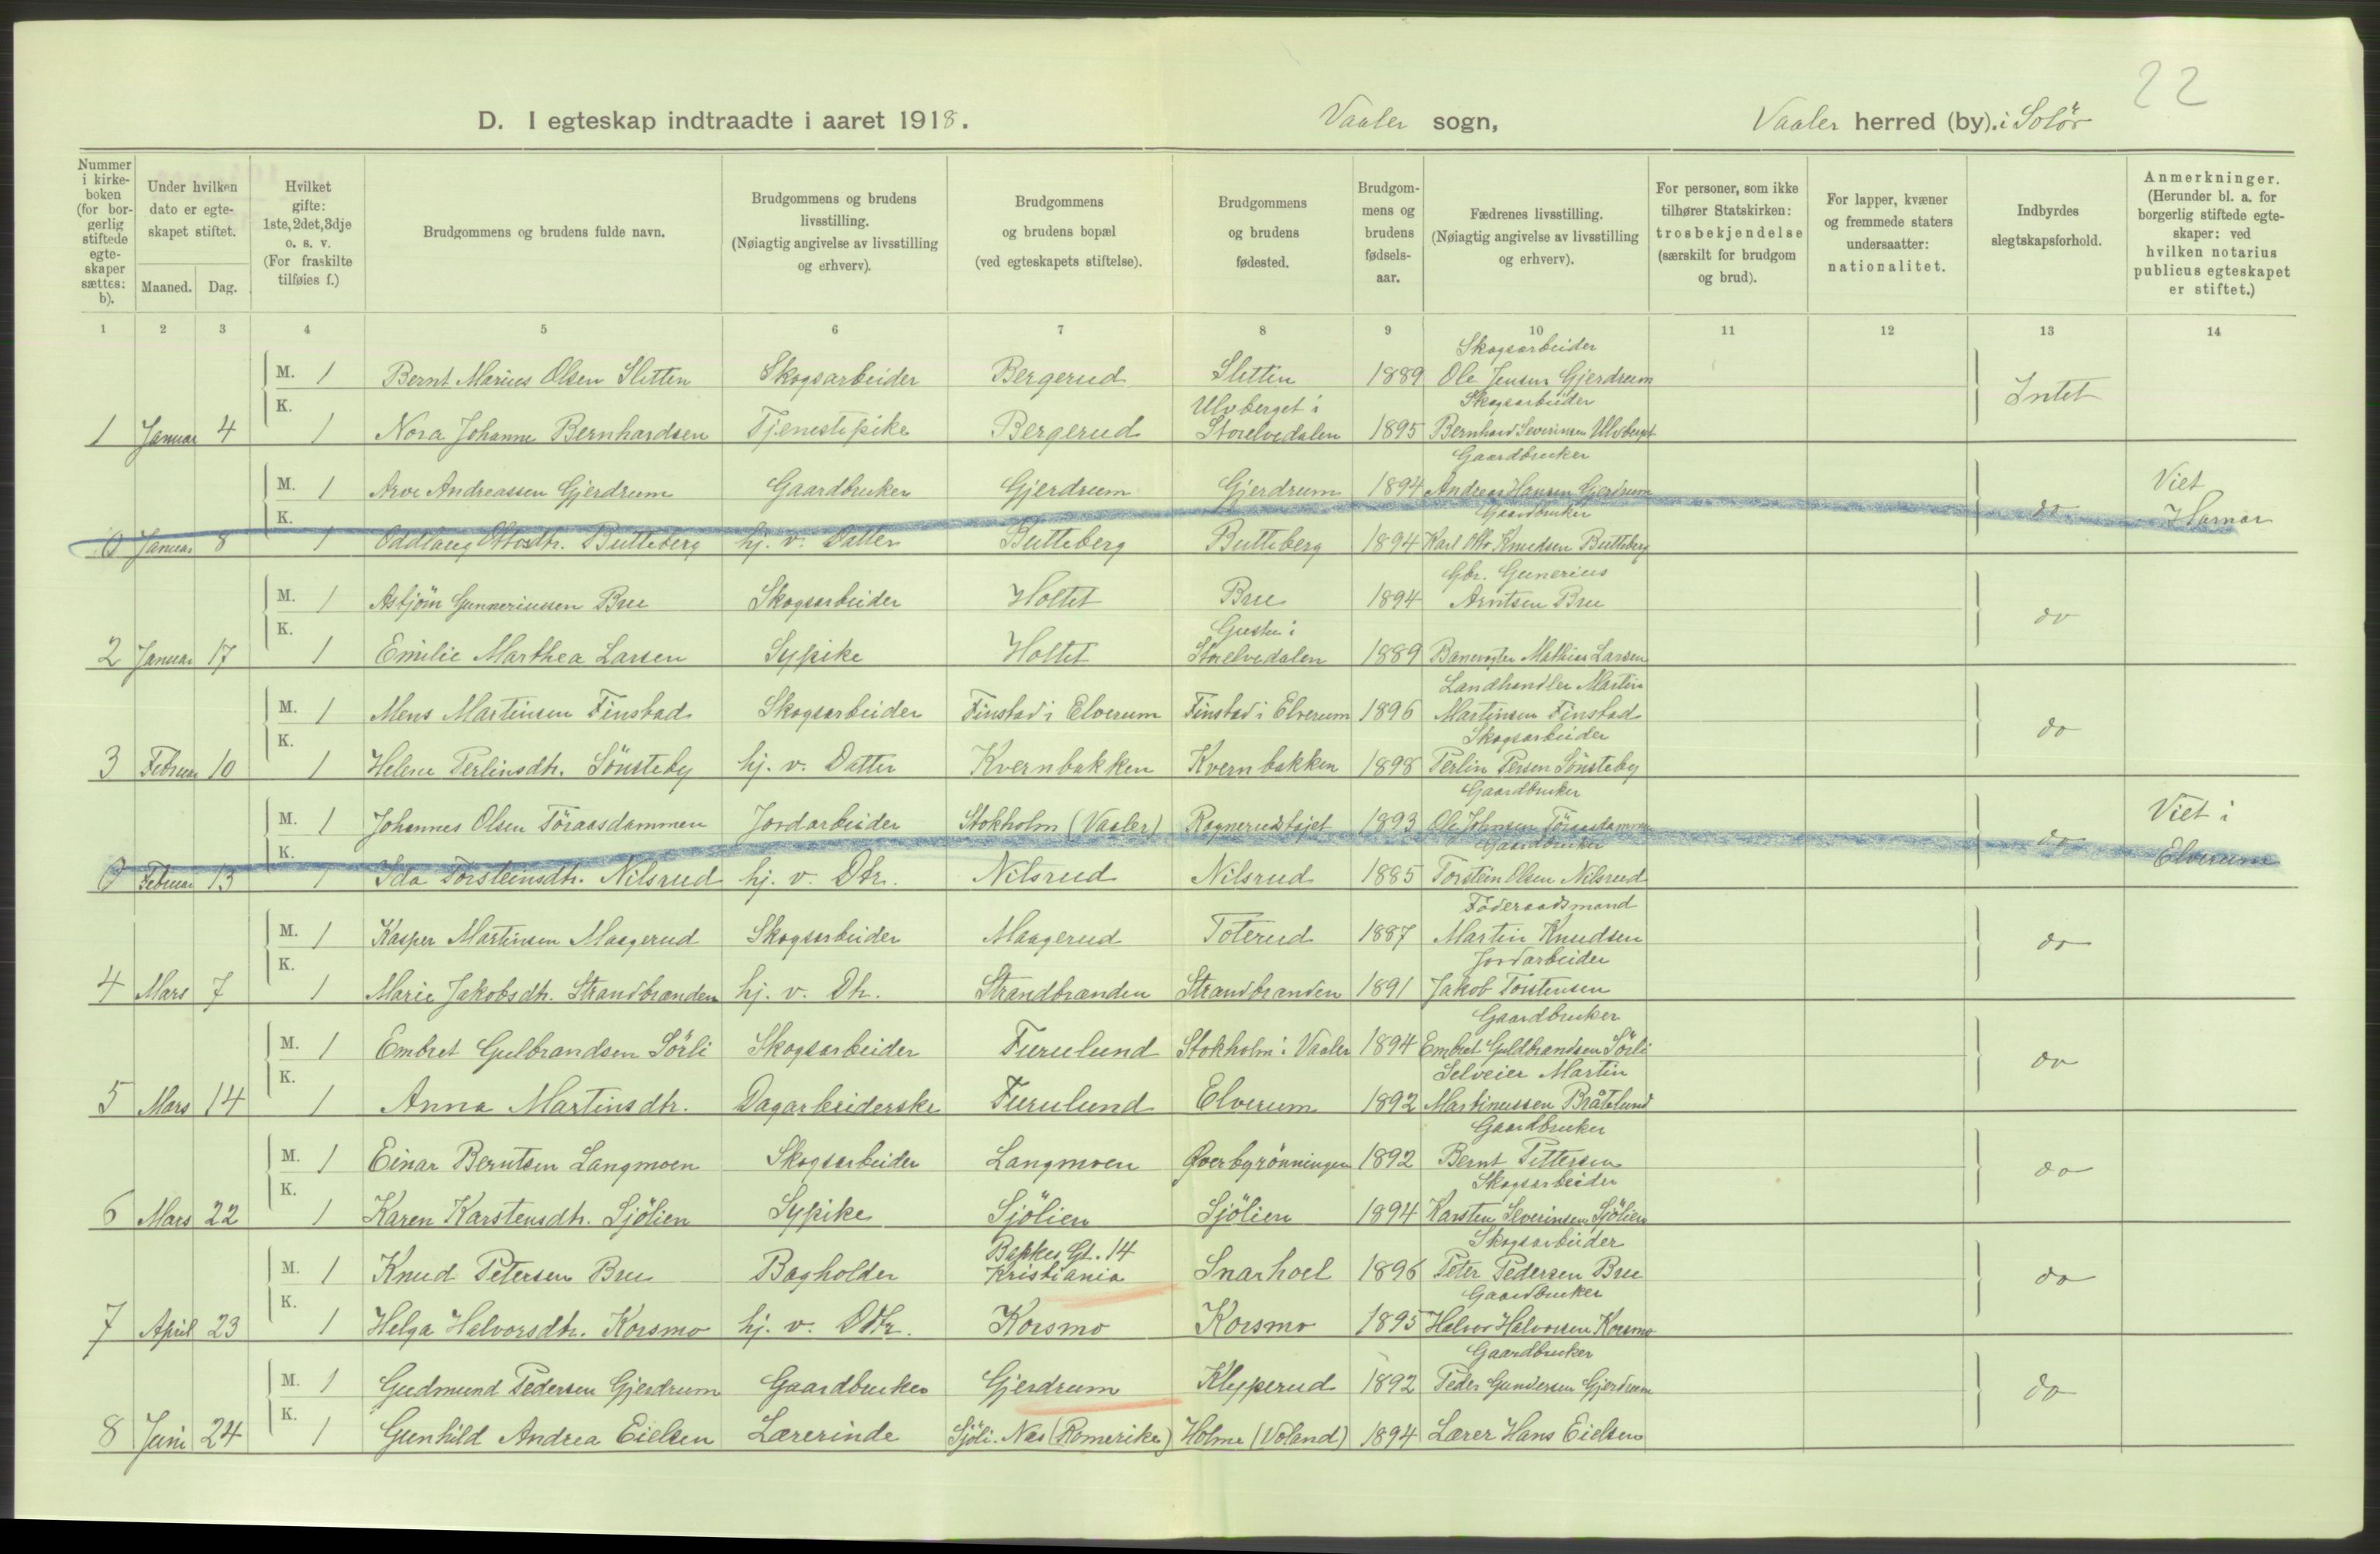 22
D. I egteskap indtraadte i aaret 1918. Vaaler sogn, Vaaler herred (by). i Solör
Nummer i kirkeboken (for borgerlig stiftede egteskaper sættes: b).
Under hvilken dato er egteskapet stiftet.
Maaned. Dag.
Hvilket gifte: 1ste, 2det, 3dje o. s. v. (For fraskilte tilføies f.)
Brudgommens og brudens fulde navn.
Brudgommens og brudens livsstilling. (Nøiagtig angivelse av livsstilling og erhverv).
Brudgommens og brudens bopæl (ved egteskapets stiftelse).
Brudgommens og brudens fødested.
Brudgommens og brudens fødselsaar.
Fædrenes livsstilling. (Nøiagtig angivelse av livsstilling og erhverv).
For personer, som ikke tilhører Statskirken: trosbekjendelse (særskilt for brudgom og brud).
For lapper, kvæner og fremmede staters undersaatter: nationalitet.
Indbyrdes slegtskapsforhold.
Anmerkninger. (Herunder bl. a. for borgerlig stiftede egteskaper: ved hvilken notarius publicus egteskapet er stiftet.)
1 2 3 4 5 6 7 8 9 10 11 12 13 14
M. 1 Bernt Marius Olsen Sletten Skogsarbeider Bergerud Slettin 1889 Skogsarbeider Ole Jensen Gjerdrum Intet
1 Januar 4 K. 1 Nora Johanne Bernhardsen Tjenestepike Bergerud Ulvberget i Storelvedalen 1895 Skogsarbeider Bernhard Severinsen Ulvberget
M. 1 Arve Andreassen Gjerdrum Gaardbruker Gjerdrum Gjerdrum 1894 Gaardbruker Andreas Hansen Gjerdrum do Viet
0 Januar 8 K. 1 Oddlaug Ottosdtr. Butteberg hj. v. Datter Butteberg Butteberg 1894 Gaardbruker Karl Otto Knudsen Butteberg Hamar
M. 1 Asbjörn Gunneriussen Bru Skogsarbeider Holtet Bru 1894 Gbr. Gunerius Arntsen Bru do
2 Januar 17 K. 1 Emilie Marthea Larsen Sypike Holtet i Storelvedalen 1889 Banevogter Mathias Larsen
M. 1 Mens Martinsen Finstad Skogsarbeider Finstad i Elverum Finstad i Elverum 1896 Landhandler Martin Martinsen Finstad do
3 Februar 10 K. 1 Helene Perlinsdtr. Sönsteby hj. v. Datter Kvernbakken Kvernbakken 1898 Skogsarbeider Perlin Persen Sönsteby
M. 1 Johannes Olsen Töraasdammen Jordarbeider Stokholm (Vaaler) 1893 Gaardbruker Ole Johnsen Töraasdammen do Viet i
0 Februar 13 K. 1 Ida Torsteinsdtr. Nilsrud hj. v. Dtr. Nilsrud Nilsrud 1885 Gaardbruker Torstein Olsen Nilsrud Elverum
M. 1 Kasper Martinsen Maagerud Skogsarbeider Maagerud Toterud 1887 Föderaadsmand Martin Knudsen do
4 Mars 7 K. 1 Marie Jakobsdtr. Strandbranden hj. v. Dtr. Strandbranden Strandbranden 1891 Jordarbeider Jakob Torstensen
M. 1 Embret Gulbrandsen Sörli Skogsarbeider Furulund Stokholm i Vaaler 1894 Gaardbruker Embret Guldbrandsen Sörli do
5 Mars 14 K. 1 Anna Martinsdtr. Dagarbeiderske Furulund Elverum 1892 Selveier Martin Martinussen Bråtelund
M. 1 Einar Berntsen Langmoen Skogsarbeider Langmoen Överbygrönningen 1892 Gaardbruker Bernt Pettersen do
6 Mars 22 K. 1 Karen Karstensdtr. Sjölien Sypike Sjölien Sjölien 1894 Skogsarbeider Karsten Severinsen Sjölien
M. 1 Knud Petersen Bru Bagholder Bakkeg Gt. 14 Kristiania Snarhoel 1896 Skogsarbeider Peter Pedersen Bru do
7 April 23 K. 1 Helga Halvorsdtr. Korsmo hj. v. Dttr. Korsmo Korsmo 1895 Gaardbruker Halvor Halvorsen Korsmo
M. 1 Gudmund Pedersen Gjerdrum Gaardbruker Gjerdrum Klypperud 1892 Gaardbruker Peder Gundersen Gjerdrum do
8 Juni 24 K. 1 Gunhild Andrea Eielsen Lærerinde Sjöli. Nes (Romerike) Holme (Voland) 1894 Lærer Hans Eielsen